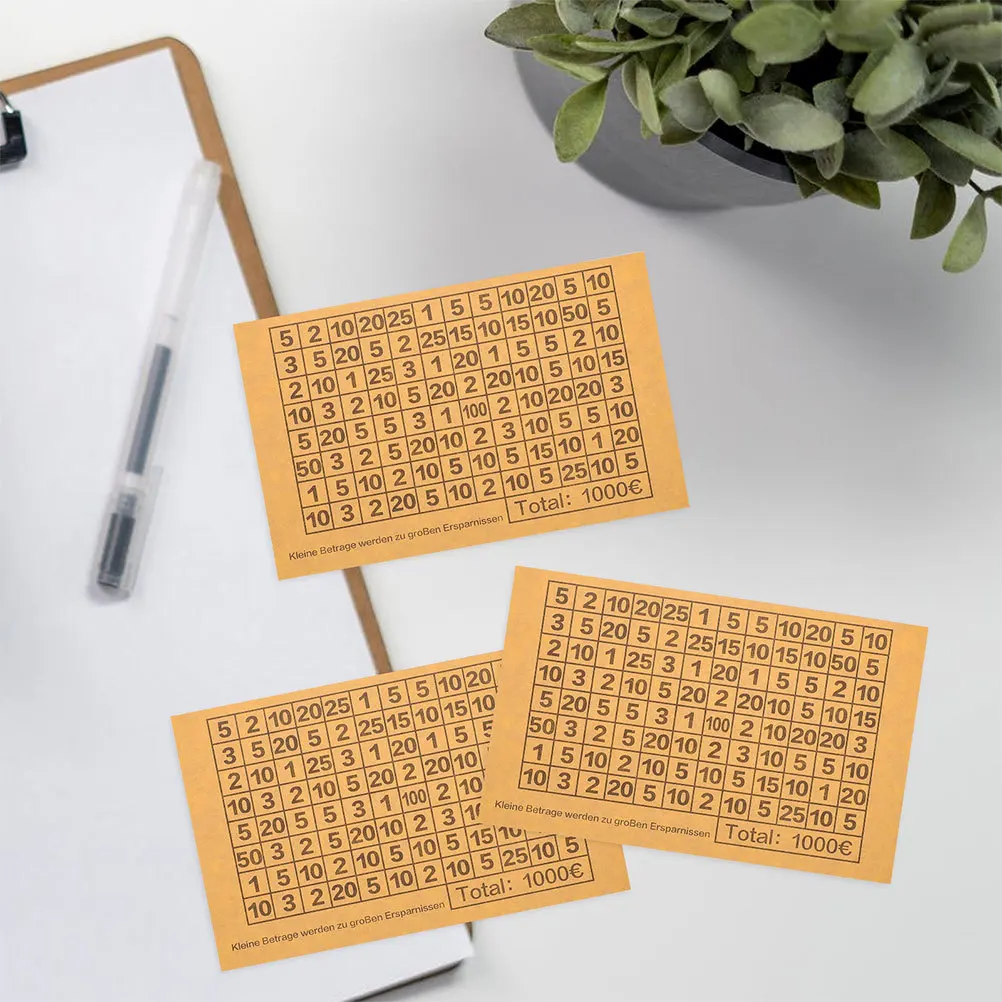 5 2 10 20 25 1 5 5 10 20 5 10
3 5 20 5 2 25 15 10 15 10 50 5
2 10 1 25 3 1 20 1 5 5 2 10
10 3 2 10 5 20 2 20 10 5 10 15
5 20 5 5 3 1 100 2 10 20 20 3
50 3 2 5 20 10 2 3 10 5 5 10
1 5 10 2 10 5 10 5 15 10 1 20
10 3 2 20 5 10 2 10 5 25 10 5
Kleine Betrage werden zu groBen Ersparnissen Total: 1000€
5 2 10 20 25 1 5 5 10 20 5 10
3 5 20 5 2 25 15 10 15 10 50 5
2 10 1 25 3 1 20 1 5 5 2 10
10 3 2 10 5 20 2 20 10 5 10 15
5 20 5 5 3 1 100 2 10 20 20 3
50 3 2 5 20 10 2 3 10 5 5 10
1 5 10 2 10 5 10 5 15 10 1 20
10 3 2 20 5 10 2 10 5 25 10 5
Kleine Betrage werden zu groBen Ersparnissen Total: 1000€
5 2 10 20 25 1 5 5 10 20
3 5 20 5 2 25 15 10 15 10
2 10 1 25 3 1 20 1 5 5
10 3 2 10 5 20 2 20 10
5 20 5 5 3 1 100 2 10
50 3 2 5 20 10 2 3
1 5 10 2 10 5 10 5
10 3 2 20 5 10 2 10 5 25 10 5
Kleine Betrage werden zu groBen Ersparnissen Total: 1000€